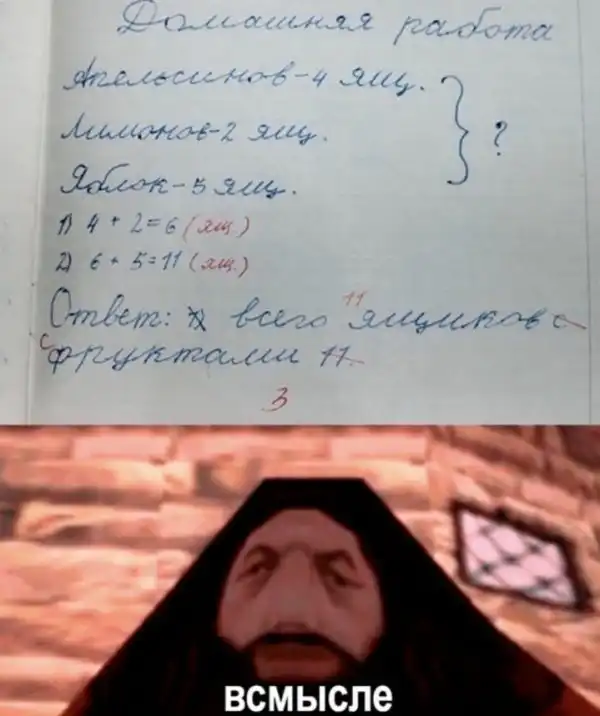 Домашняя работа
Апельсинов-4 ящ.
Лимонов-2 ящ.
?
Яблок-5 ящ.
1) 4 + 2=6 (ящ.)
2) 6 + 5=11 (ящ.)
11
Ответ: всего ящиков с
с фруктами 11.
3
всмысле